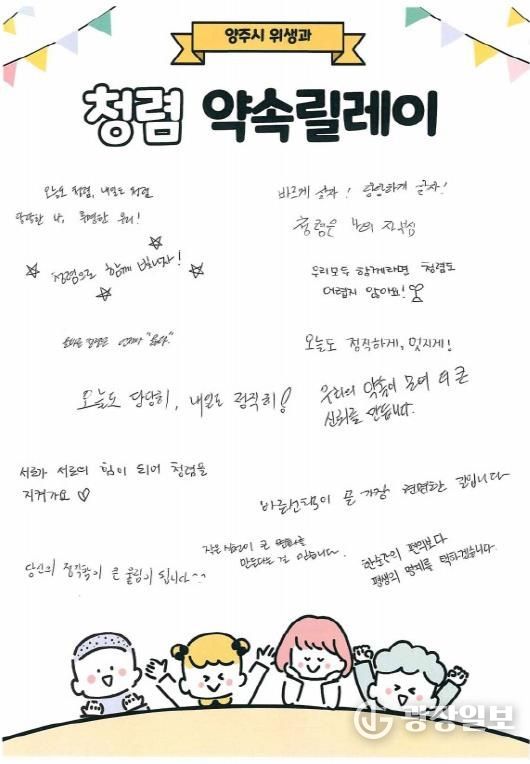 양주시 위생과
청렴 약속릴레이
오늘도 청렴, 내일도 청렴
당당한 나, 투명한 우리!
바르게 살자! 당당하게 살자!
청렴은 나의 자부심
청렴으로 함께 빛나자!
우리모두 함께라면 청렴도
어렵지 않아요!
오늘도 정직하게, 멋지게!
오늘도 당당히, 내일도 정직히!
우리의 약속이 모여 더 큰
신뢰를 만듭니다.
서로가 서로의 힘이 되어 청렴을
지켜가요 ♡
바른선택이 곧 가장 현명한 길입니다
작은 실천이 큰 변화를
만든다는 걸 믿습니다.
한순간의 편의보다
평생의 명예를 택하겠습니다.
당신의 정직함이 큰 울림이 됩니다^^
경장일보